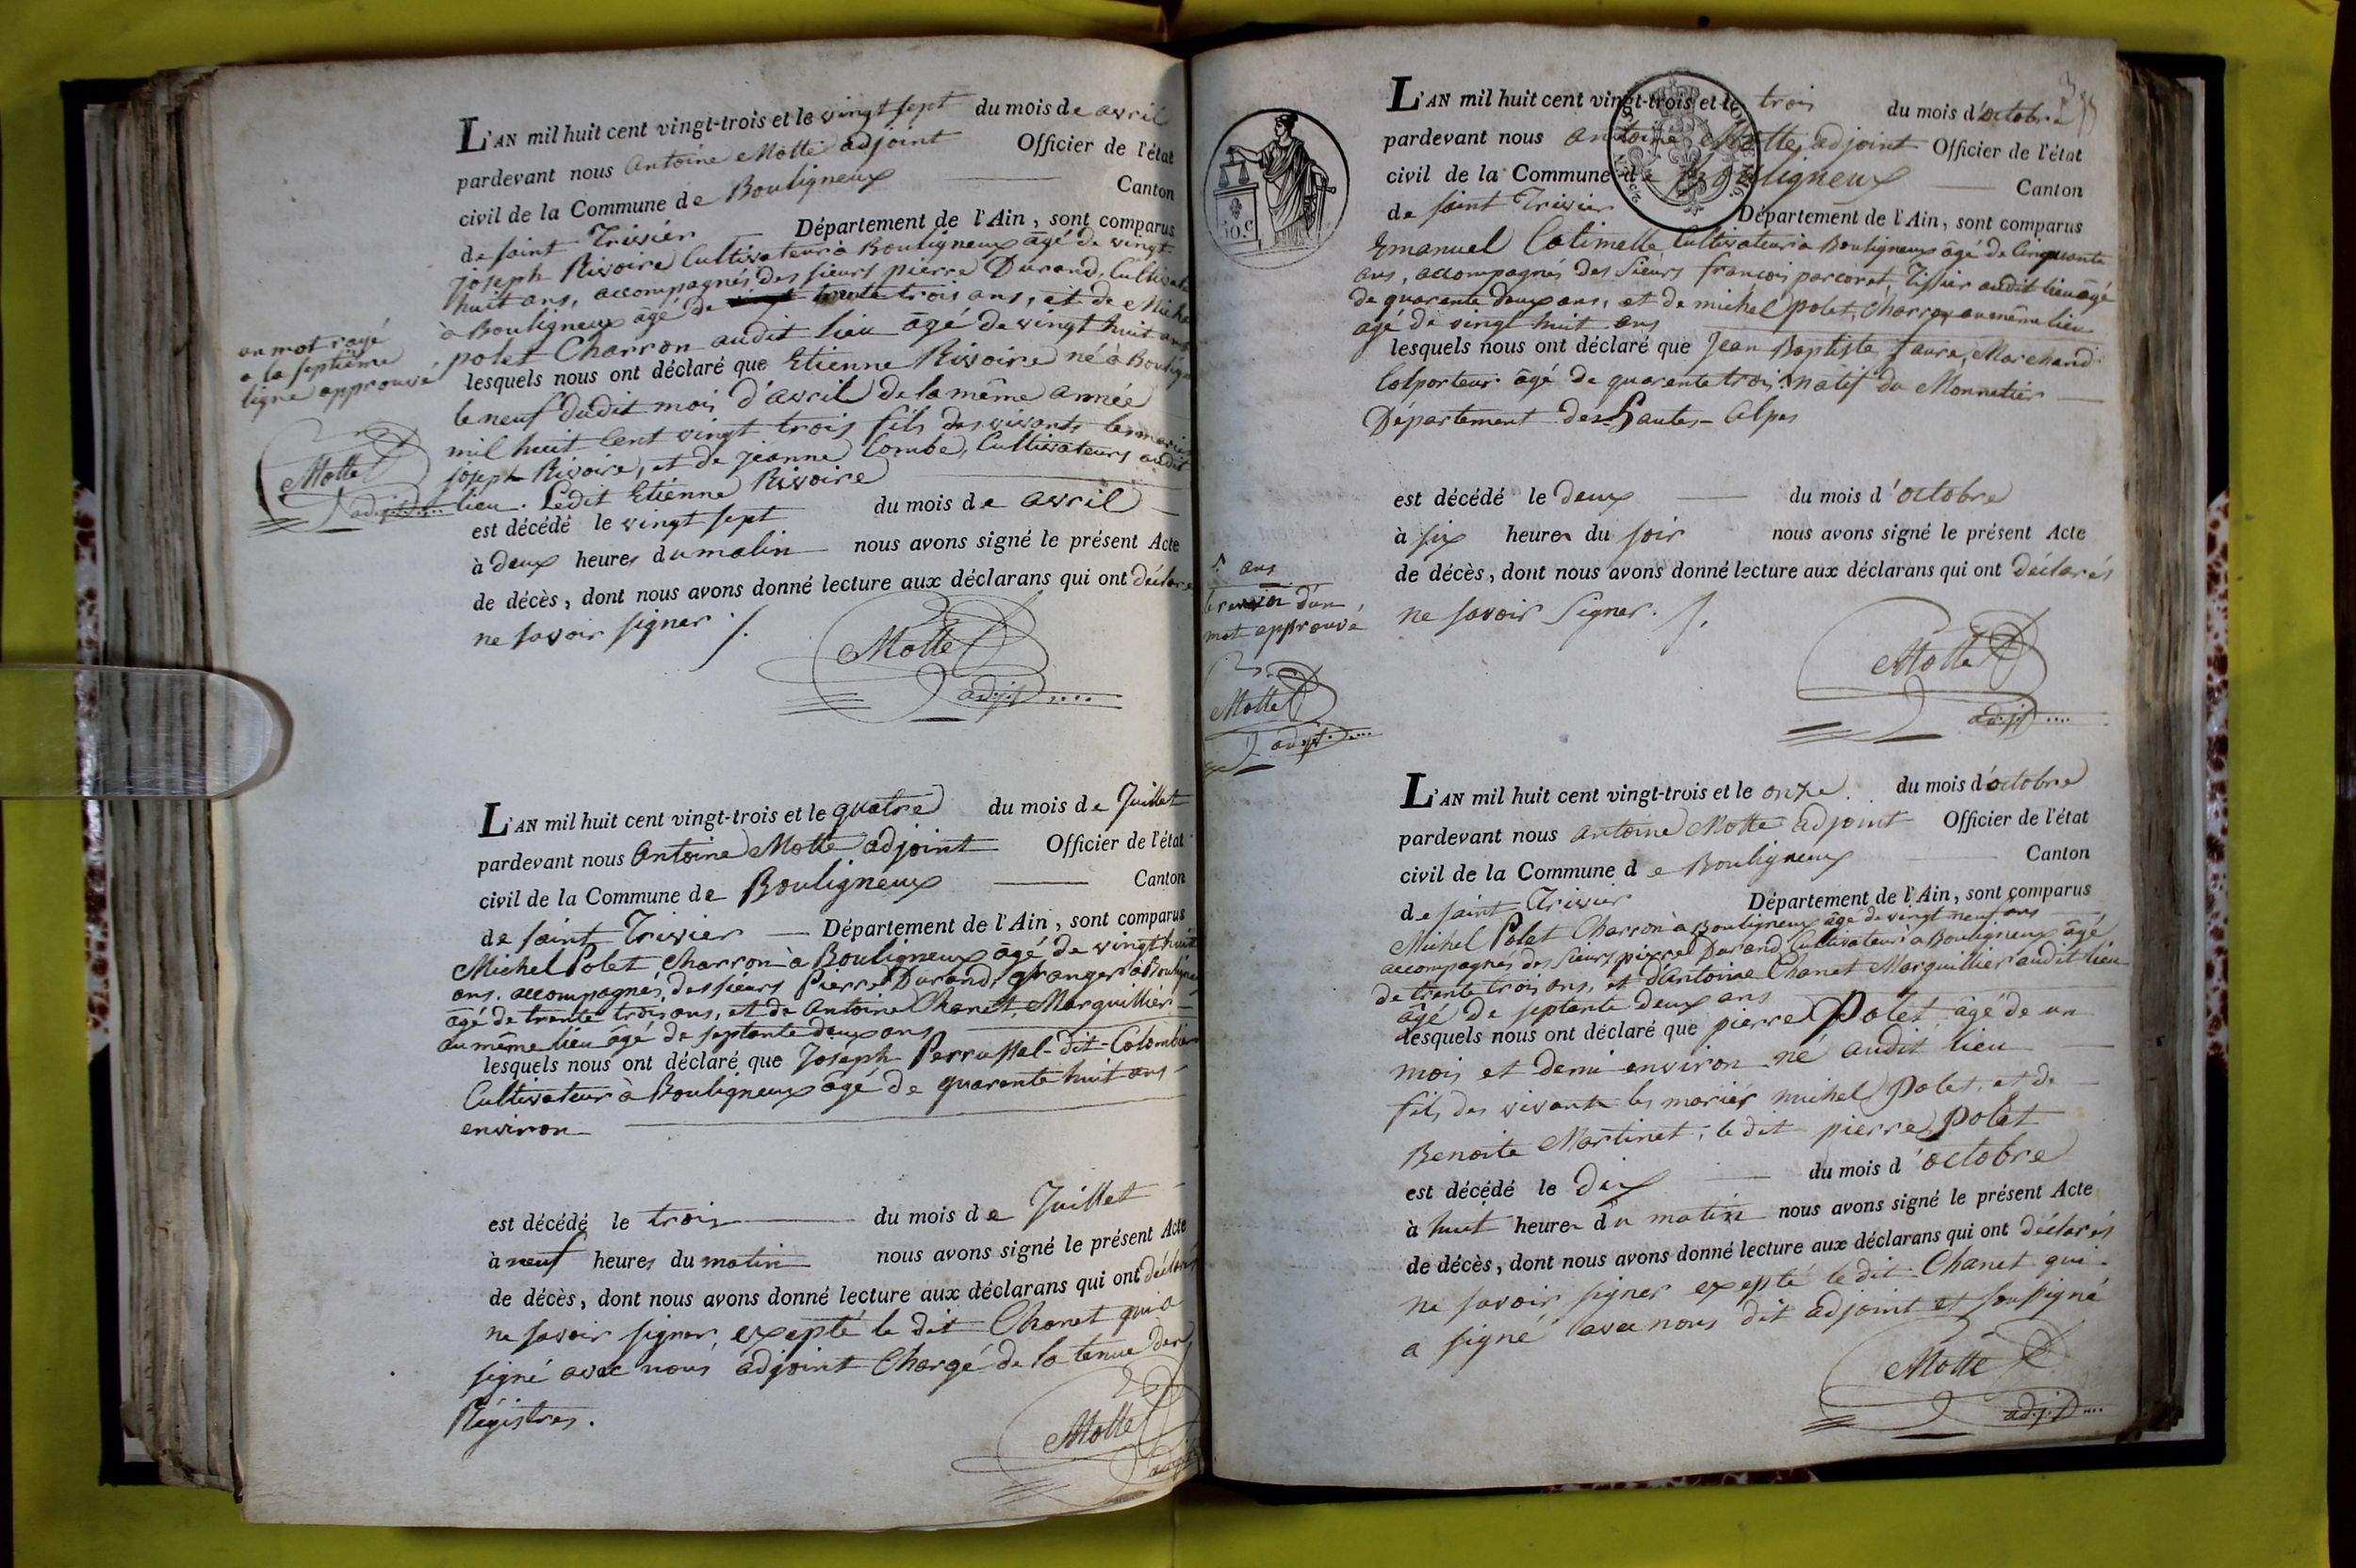 L'AN mil huit cent vingt-trois et le vingt sept du mois de avril
pardevant nous Antoine Motte adjoint Officier de l'état
civil de la Commune de Bouligneux Canton
de saint Trivier Département de l'Ain, sont comparus
joseph Rivoire Cultivateur à Bouligneux âgé de vingt
huit ans, accompagnés des sieurs pierre Durand, Cultivate
à Bouligneux âgé de trente trois ans, et de Miche
polet Charron audit lieu âgé de vingt huit ans
lesquels nous ont déclaré que Etienne Rivoire né à Boulign
le neuf dudit mois d'avril de la même année
mil huit Cent vingt trois fils des vivants les mariés
joseph Rivoire, et de jeanne Combe, Cultivateurs audit
lieu. Ledit Etienne Rivoire
est décédé le vingt sept du mois de avril
à deux heures du matin nous avons signé le présent Acte
de décès, dont nous avons donné lecture aux déclarans qui ont déclaré
ne savoir signer ./.
Motte
adjt
un mot rayé
a la septième
ligne approuvé
Motte
adjt
L'AN mil huit cent vingt-trois et le quatre du mois de Juillet
pardevant nous Antoine Motte adjoint Officier de l'état
civil de la Commune de Bouligneux Canton
de saint Trivier Département de l'Ain, sont comparus
Michel Polet Charron à Bouligneux âgé de vingt huit
ans. accompagnés, des sieurs Pierre Durand, granger à Boulign
âgé de trente trois ans, et de Antoine Chanet, Marguillier
au même lieu âgé de septante deux ans
lesquels nous ont déclaré que Joseph Perrussel-dit-Colombier
Cultivateur à Bouligneux âgé de quarante huit ans
environ
est décédé le trois du mois de Juillet
à neuf heures du matin nous avons signé le présent Acte
de décès, dont nous avons donné lecture aux déclarans qui ont déclarés
ne savoir signer, excepté le dit Chanet qui a
signé avec nous adjoint Chargé de la tenue des
Régistres.
Motte
adjt
L'AN mil huit cent vingt-trois et le trois du mois d'octobre
pardevant nous antoine Motte, adjoint Officier de l'état
civil de la Commune de Bouligneux Canton
de saint Trivier Département de l'Ain, sont comparus
Emanuel Catimelle Cultivateur à Bouligneux âgé de Cinquante
ans, accompagnés des Sieurs françois parcoret, Tissier audit lieu âgé
de quarante deux ans, et de michel polet, Charron au même lieu
âgé de vingt huit ans
lesquels nous ont déclaré que Jean Baptiste faure, Marchand
Colporteur âgé de quarente trois natif du Monnetier
Département des Hautes-Alpes
est décédé le deux du mois d'octobre
à six heures du soir nous avons signé le présent Acte
de décès, dont nous avons donné lecture aux déclarans qui ont déclarés
ne savoir Signer. /.
Motte
adjt
ans
le renvoi d'un
mot approuvé
Motte
adjt
50.c
L'AN mil huit cent vingt-trois et le onze du mois d'octobre
pardevant nous Antoine Motte adjoint Officier de l'état
civil de la Commune de Bouligneux Canton
de saint Trivier Département de l'Ain, sont comparus
Michel Polet Charron à Bouligneux âgé de vingt neuf ans
accompagnés des Sieurs pierre Durand, Cultivateur à Bouligneux âgé
de trente trois ans, et d'Antoine Chanet Marguillier audit lieu
âgé de septante deux ans
lesquels nous ont déclaré que pierre Polet, âgé de un
mois et demi environ né audit lieu
fils des vivants les mariés michel Polet, et de
Benoite Martinet, le dit pierre Polet
est décédé le dix du mois d'octobre
à huit heures du matin nous avons signé le présent Acte
de décès, dont nous avons donné lecture aux déclarans qui ont déclarés
ne savoir signer excepté le dit Chanet qui
a signé avec nous dit adjoint et soussigné
Motte
adjt